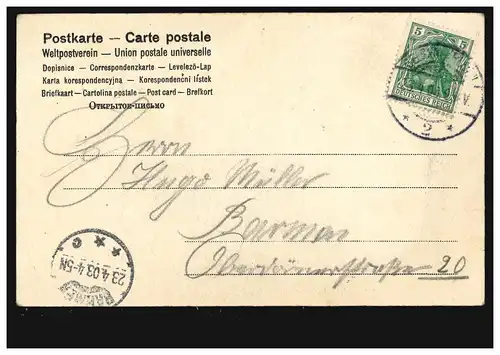 Postkarte — Carte postale
Weltpostverein — Union postale universelle
Dopisnice — Correspondenzkarte — Levelező-Lap
Karta korespondencyjna — Korespondenční lístek
Briefkaart — Cartolina postale — Post card — Brefkort
Открытое письмо
5 5
DEUTSCHES REICH
V.
* 2 *
Herrn
Hugo Müller
Barmen
20
* * c
23.4.03.4-5N
BARMEN